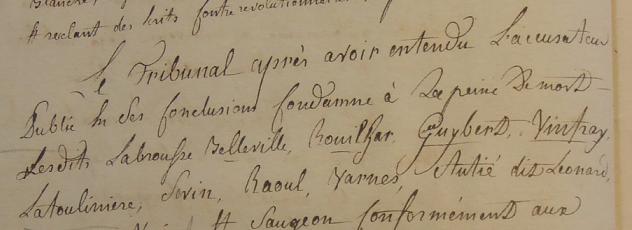 & reclant des Ecrits Contrerevolutionnaires
Le Tribunal après avoir entendu L'accusateur
Public En Ses Conclusions Condamne à La peine De mort
Lesdits Labrousse Belleville, Rouilhac, Guybert, Vinfray,
Latouliniere, Sevin, Raoul, Varnes, Autié dit Leonard,
& Saugeon Conformément aux